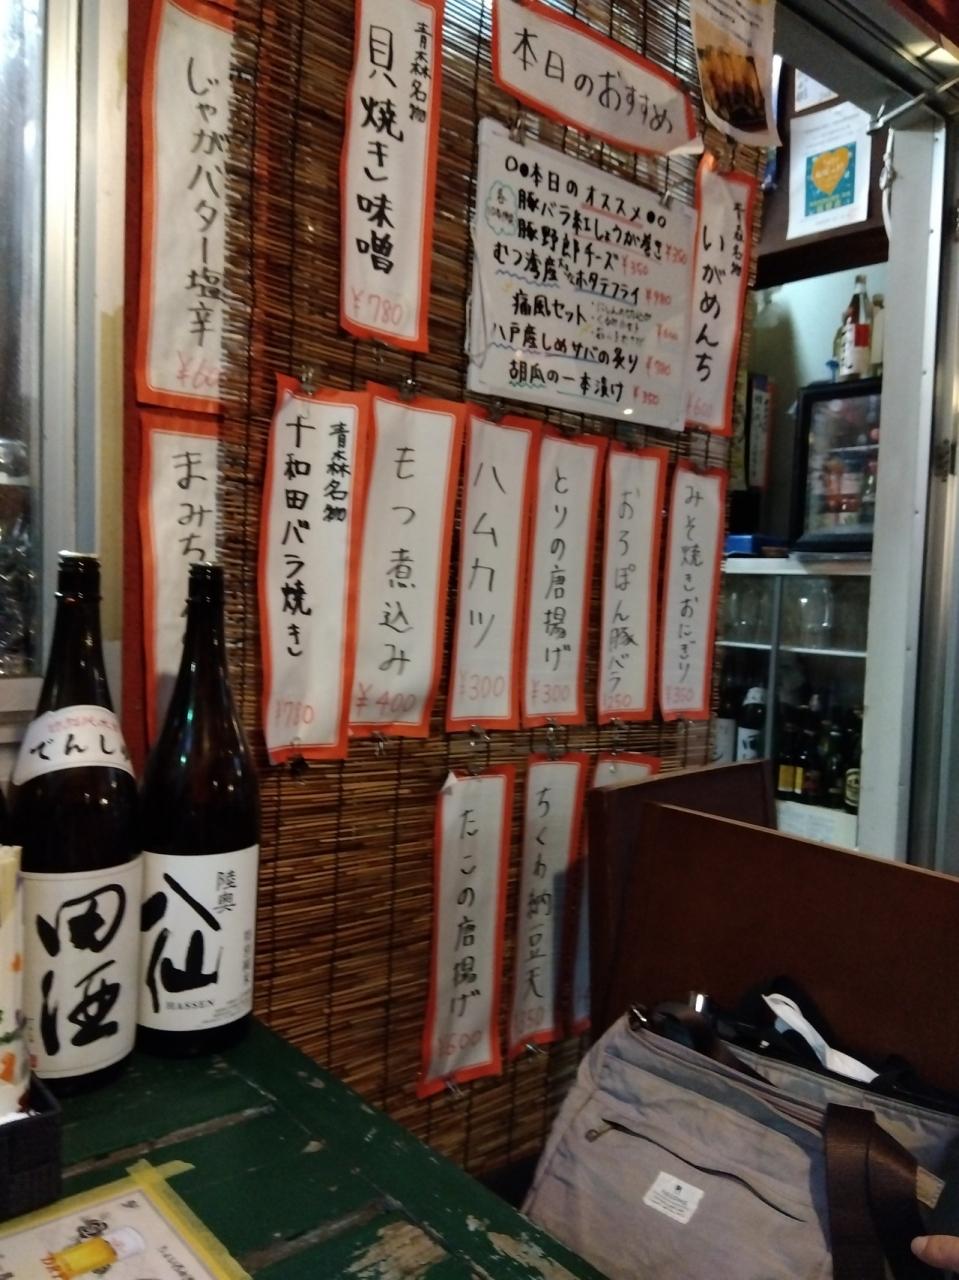 本日のおすすめ
青森名物
貝焼き味噌
¥780
じゃがバター塩辛
○●本日のオススメ●○
豚バラ紅しょうが巻き ¥350
豚野郎チーズ ¥350
むつ湾産 ホタテフライ ¥980
痛風セット
八戸産しめサバの炙り ¥780
胡瓜の一本漬け ¥350
青森名物
いがめんち
¥600
青森名物
十和田バラ焼き
¥780
もつ煮込み
¥400
ハムカツ
¥300
とりの唐揚げ
¥300
おろぽん豚バラ
みそ焼きおにぎり
¥350
まみち
たこの唐揚げ
¥600
ちくわ納豆天
でんし
田酒
陸奥
八仙
HASSEN